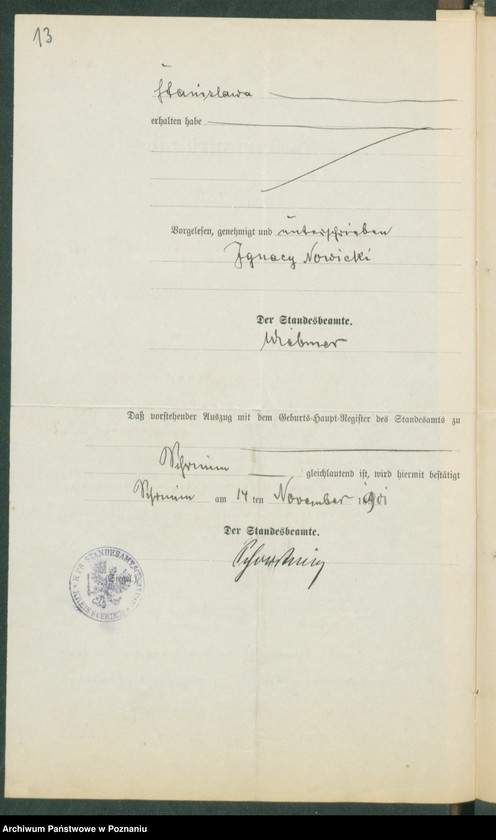 13
Stanislawa
erhalten habe
Vorgelesen, genehmigt und unterschrieben
Ignacy Nowicki
Der Standesbeamte.
Daß vorstehender Auszug mit dem Geburts-Haupt-Register des Standesamts zu
Schrimm gleichlautend ist, wird hiermit bestätigt
Schrimm am 14 ten November 1901
Der Standesbeamte.
(Siegel.)
STANDESAMT
Archiwum Państwowe w Poznaniu